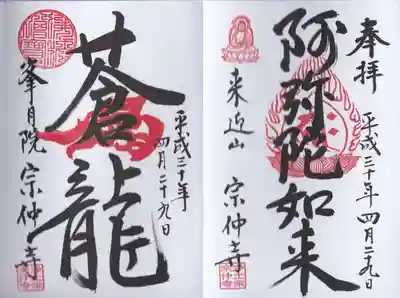 奉拝
平成三十年四月二十九日
阿弥陀如来
来迎山 宗仲寺
平成三十年
四月二十九日
蒼龍
峯月院 宗仲寺